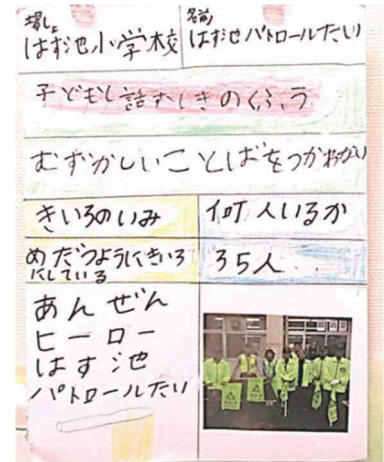 場しょ
はす池小学校
名前
はす池パトロールたい
子どもと話すときのくふう
むずかしいことばをつかわない
きいろのいみ
何人いるか
めだつようにきいろ
にしている
35人
あんぜん
ヒーロー
はす池
パトロールたい